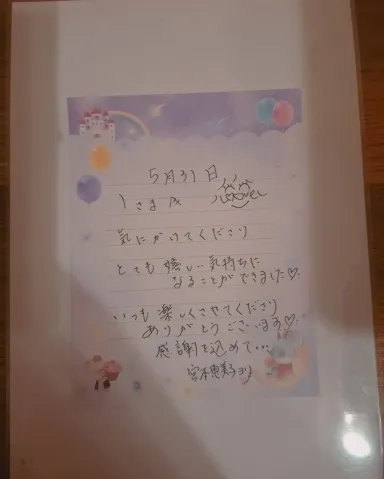 5月31日
気にかけてくださり
とても嬉しい気持ちに
なることができました♡
いつも楽しくさせてくださり
ありがとうございます♡
感謝を込めて…
宮本恵美ヨリ